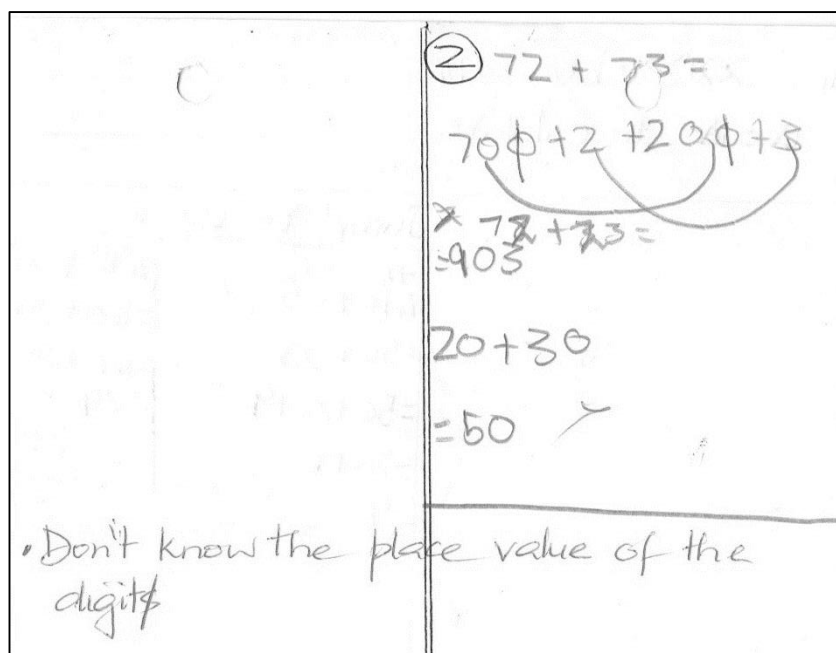 ② 72 + 73 =
700 + 2 + 200 + 3
72 + 23 =
=903
20+30
=50
• Don't know the place value of the
digits